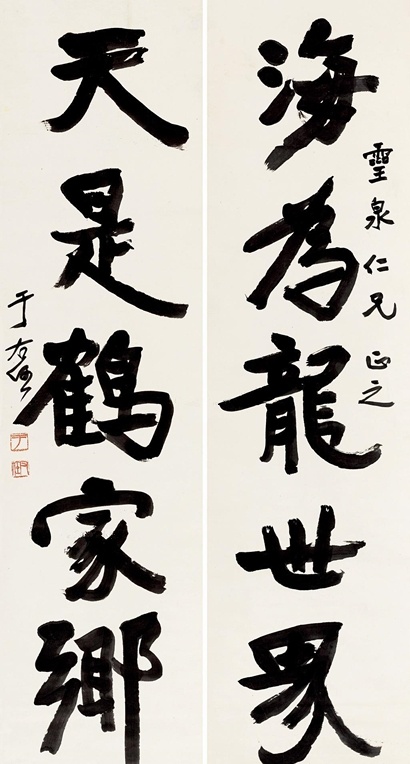 靈泉仁兄正之
海為龍世界
天是鶴家鄉
于右任